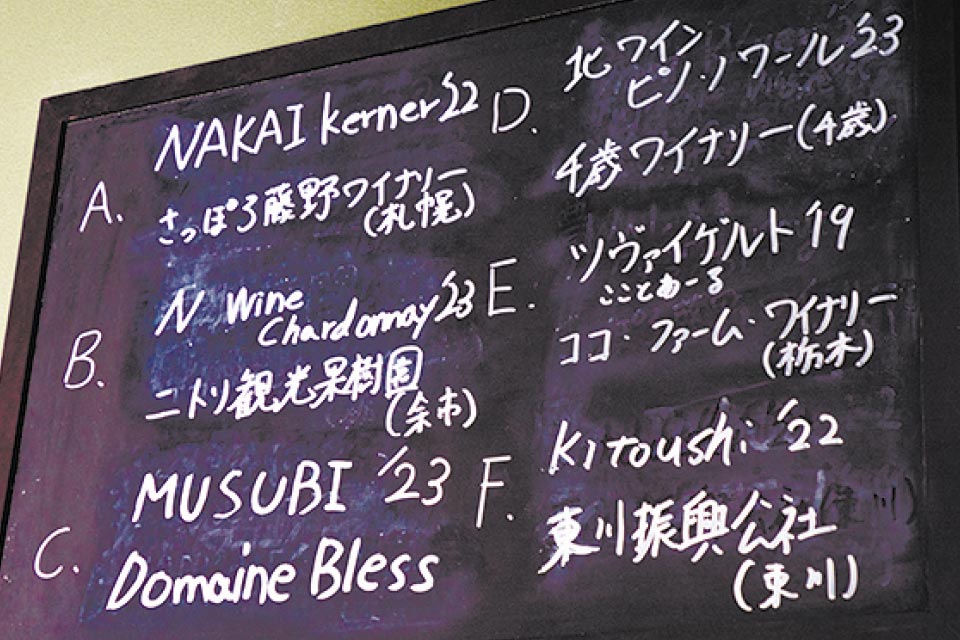 A.
NAKAI kerner '22
さっぽろ藤野ワイナリー
(札幌)
B.
N Wine
Chardonnay '23
ニトリ観光果樹園
(余市)
C.
MUSUBI '23
Domaine Bless
D.
北ワイン
ピノ・ノワール '23
千歳ワイナリー(千歳)
E.
ツヴァイゲルト 19
こことあーる
ココ・ファーム・ワイナリー
(栃木)
F.
Kitoushi '22
東川振興公社
(東川)